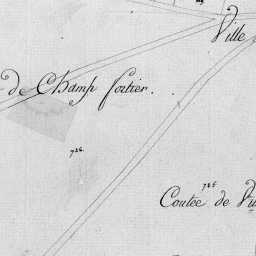 Ville
de Champ fortier.
726.
725
Coutée de Vi